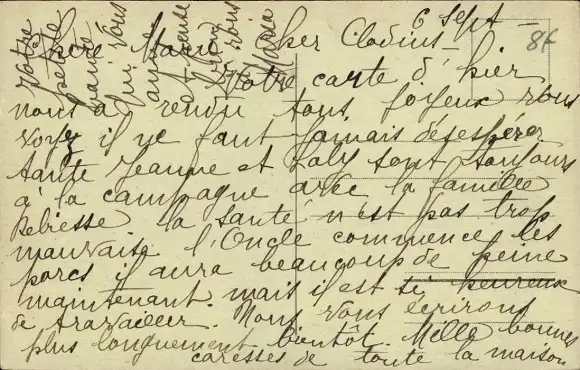 6 Sept
86
Chère Marie Cher Claudius
Votre carte d'hier
nous a rendu tous joyeux vous
voyez il ne faut jamais désespérer
tante Jeanne et Laly sont toujours
à la campagne avec la famille
la santé n'est pas trop
mauvaise l'Oncle commence les
parcs il aura beaucoup de peine
maintenant. mais il est si peureux
de travailler. Nous vous écrirons
plus longuement bientôt. Mille bonnes
caresses de toute la maison
Votre
petite
qui vous
aime